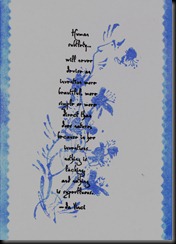 Human
subtlety...
will never
devise an
invention more
beautiful, more
simple or more
direct than
does nature,
because in her
inventions
nothing is
lacking
and nothing
is superfluous.
-da Vinci